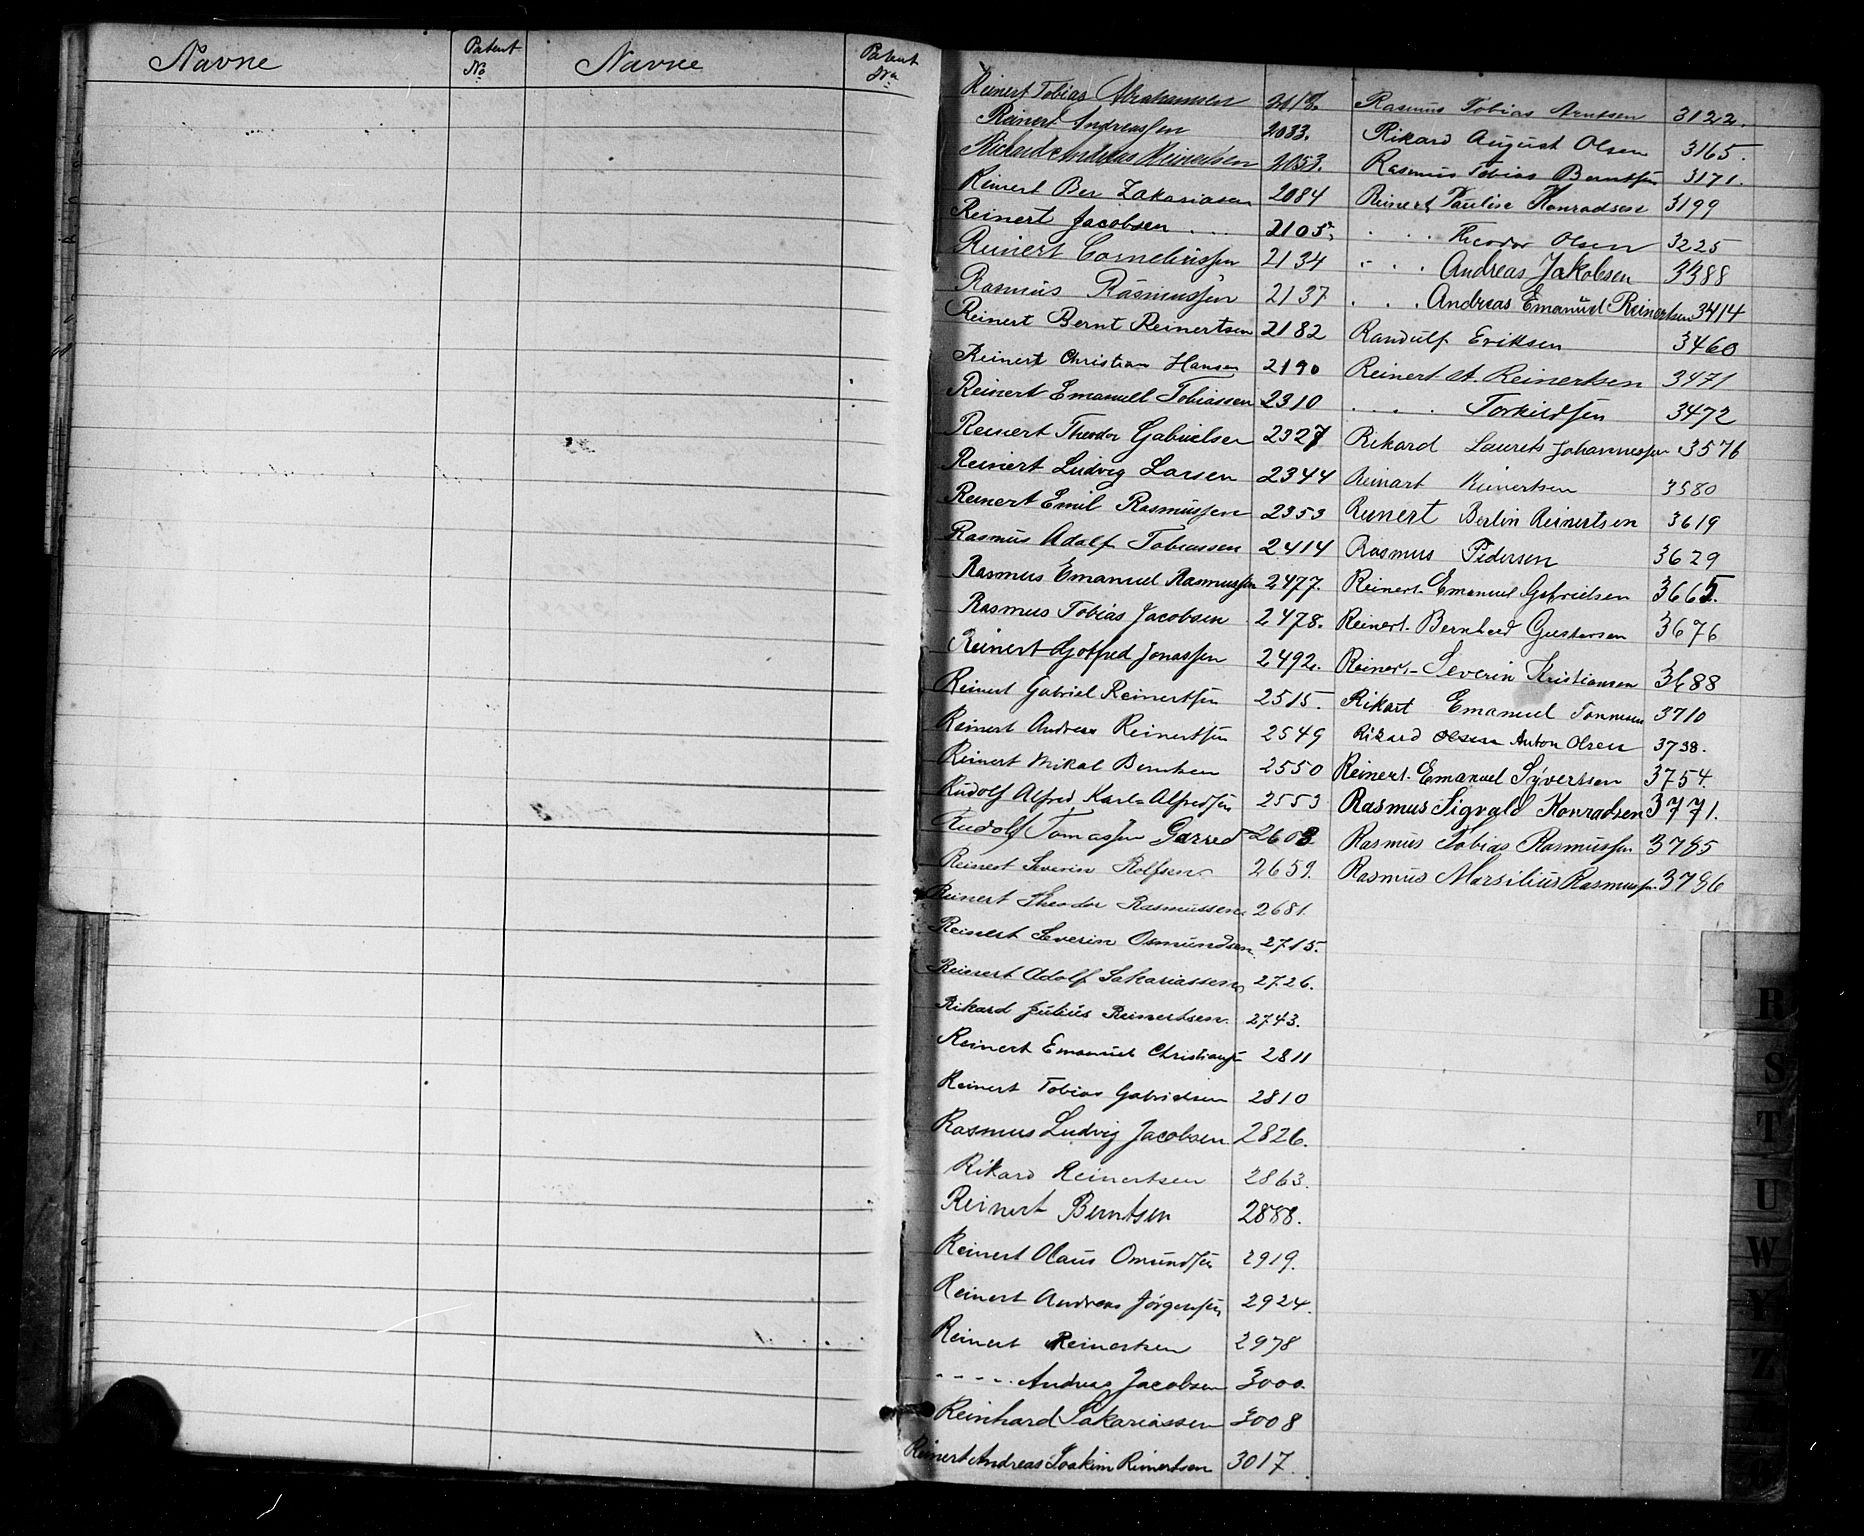 Navne Patent No Navne Patent No
Reinert Tobias Abrahamsen
Reinert Andreassen 2033.
Richard Andreas Reinertsen 2053.
Reinert Ber Zakariasen 2084
Reinert Jacobsen 2105
Reinert Corneliussen 2134
Rasmus Rasmussen 2137
Reinert Bernt Reinertsen 2182
Reinert Christian Hansen 2190
Reinert Emanuel Tobiassen 2310
Reinert Theodor Gabrielsen 2327
Reinert Ludvig Larsen 2344
Reinert Emil Rasmussen 2353
Rasmus Adolf Tobiassen 2414
Rasmus Emanuel Rasmussen 2477.
Rasmus Tobias Jacobsen 2478.
Reinert Gotfred Jonassen 2492.
Reinert Gabriel Reinertsen 2515.
Reinert Andreas Reinertsen 2549
Reinert Mikal Berntsen 2550
Rudolf Alfred Karl Alfredsen 2553
Rudolf Tomassen Garred 2603
Reinert Severin Rolfsen 2659.
Reinert Theodor Rasmussen 2681.
Reinert Severin Osmundsen 2715.
Reinert Adolf Sakariassen 2726.
Rikard Julius Reinertsen 2743.
Reinert Emanuel Christiansen 2811
Reinert Tobias Gabrielsen 2810
Rasmus Ludvig Jacobsen 2826.
Rikard Reinertsen 2863.
Reinert Berntsen 2888.
Reinert Olaus Omundsen 2919.
Reinert Andreas Jörgensen 2924.
Reinert Reinertsen 2978
- - - - - Andreas Jacobsen 3000.
Reinhard Sakariassen 3008
Reinert Andreas Joakim Reinertsen 3017.
Rasmus Tobias Arntsen 3122.
Rikard August Olsen 3165.
Rasmus Tobias Berntsen 3171.
Reinert Pauline Konradsen 3199
. . . Theodor Olsen 3225
- . . . Andreas Jakobsen 3388
. . . Andreas Emanuel Reinertsen 3414
Randulf Eriksen 3460
Reinert A. Reinertsen 3471
. . . . Torkildsen 3472
Rikard Laurits Johannessen 3576
Reinart Reinertsen 3580
Reinert Berlin Reinertsen 3619
Rasmus Pedersen 3629
Reinert. Emanuel Gabrielsen 3665.
Reinert. Bernhard Gustavsen 3676
Reinert Severin Kristiansen 3688
Rikart Emanuel Tonnesen 3710
Rikard Olsen Anton Olsen 3738.
Reinert. Emanuel Syvertsen 3754.
Rasmus Sigvald Konradsen 3771.
Rasmus Tobias Rasmussen 3785
Rasmus Marsilius Rasmussen. 3796
R
S
T
U
W
Y
Z
Ø